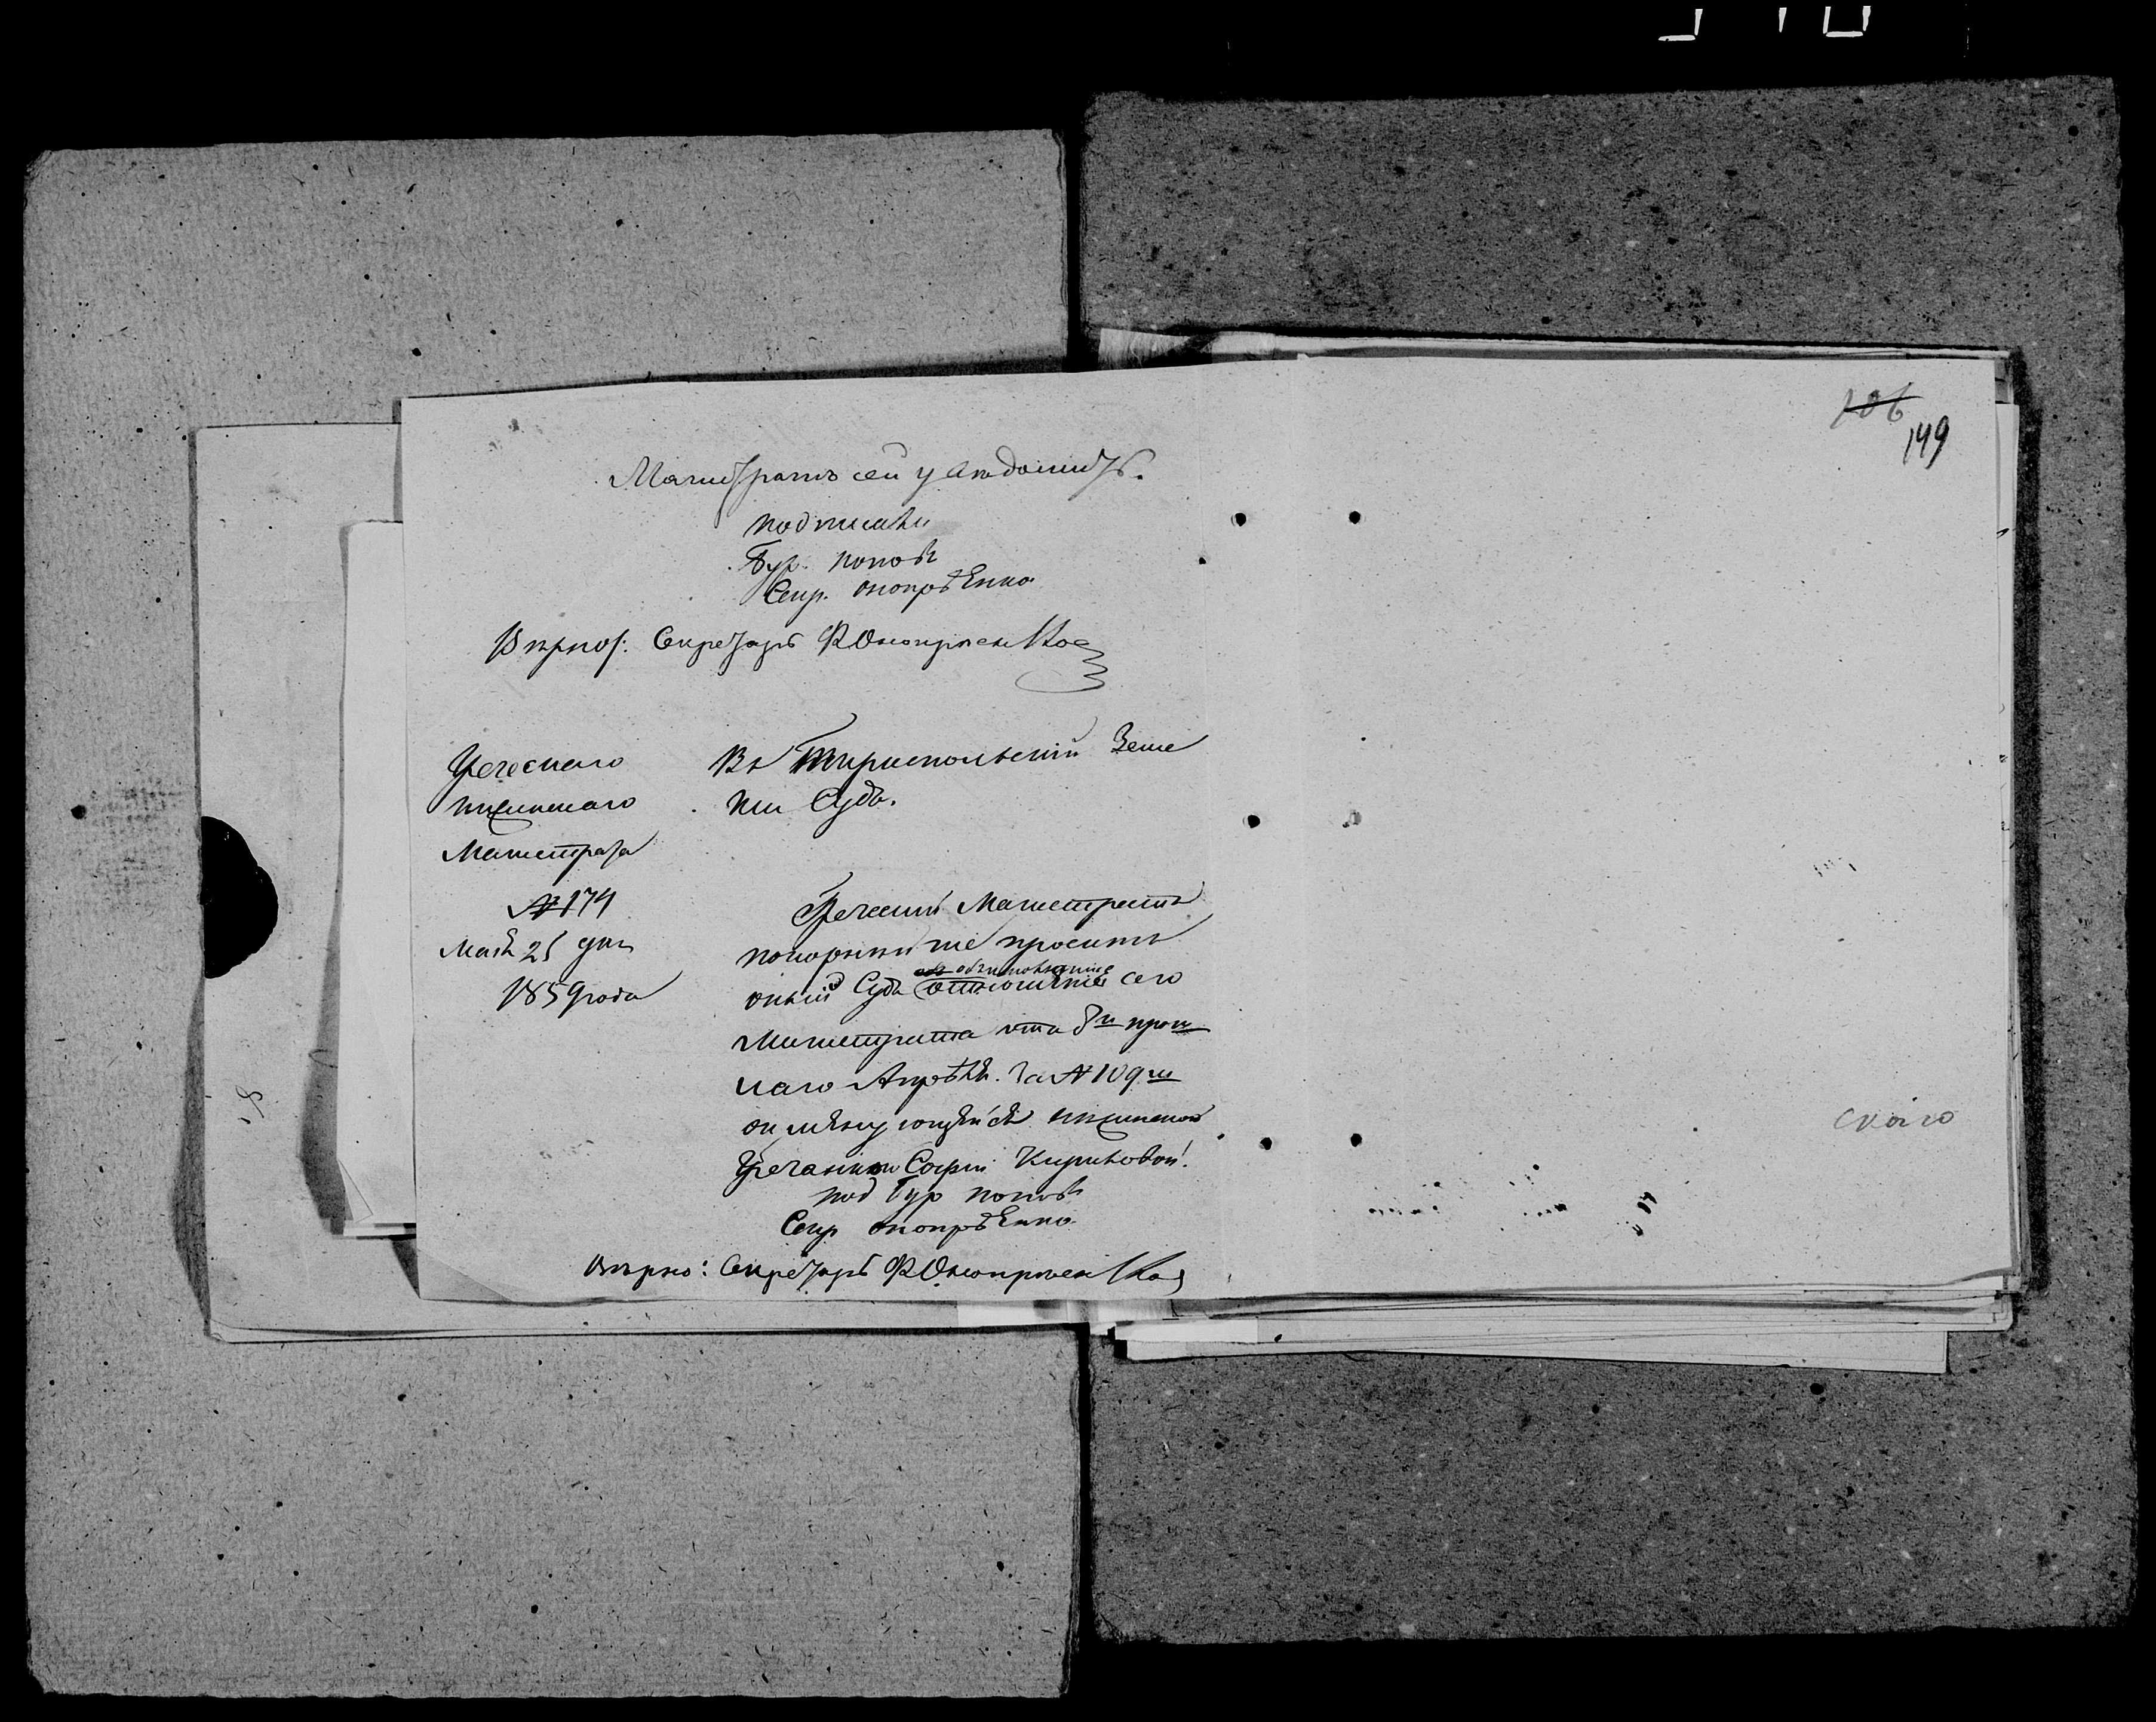 106
149
Магистратъ сей увѣдомить.
подписали
Бур. поповъ
Секр. онопрѣенко
Вѣрно: Секретарь Ѳ Онопрѣенко
Греческаго
нѣжинскаго
Магистрата
№ 174
Маія 25 дня
1859 года
Въ Тираспольскій Земс
кій Судъ.
Греческій Магистратъ
покорнѣйше проситъ
оный Судъ сего
Магистрата отъ 8го прош
лаго Апрѣля. за № 109м
нѣжинской
Гречанки Софіи Кириковой.
под Бур поповъ
Секр онопрѣенко
Вѣрно: Секретарь Ѳ Онопрѣенко
скаго